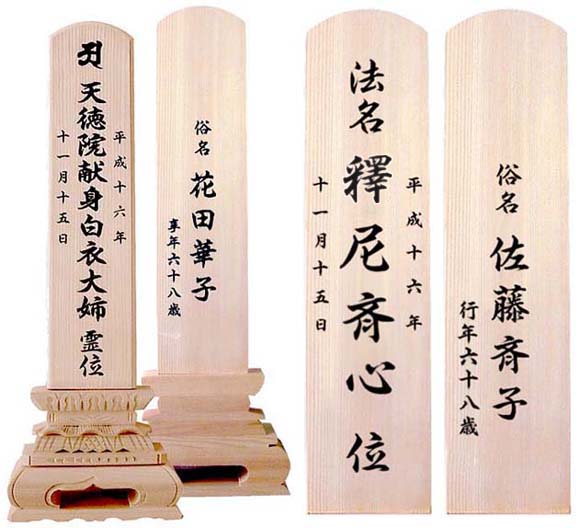 𑖀 天徳院献身白衣大姉 霊位
平成十六年
十一月十五日
俗名 花田華子
享年六十八歳
法名 釋尼斉心 位
平成十六年
十一月十五日
俗名 佐藤斉子
行年六十八歳